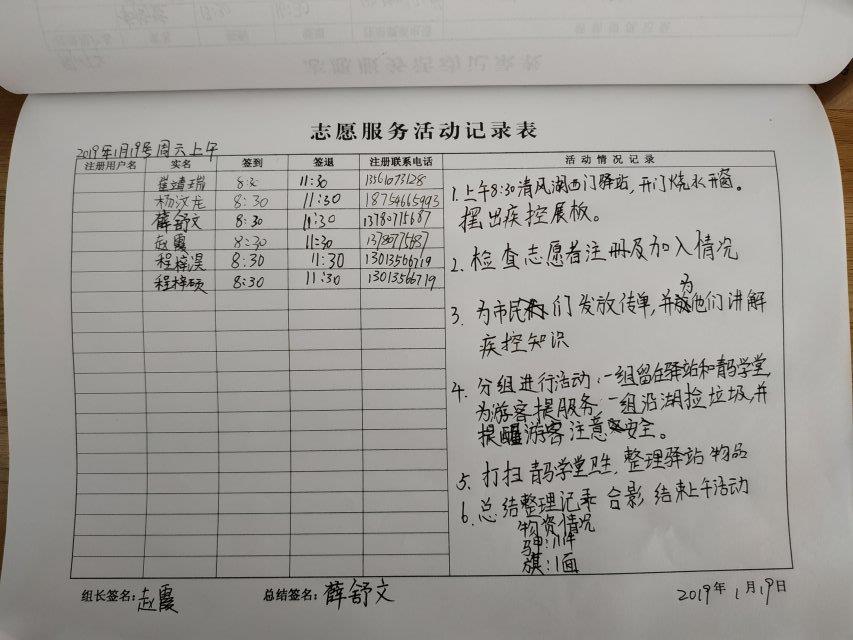 志愿服务活动记录表
2019年1月19号周六上午
注册用户名 实名 签到 签退 注册联系电话 活动情况记录
崔靖瑞 8:30 11:30 13561073128
杨汶龙 8:30 11:30 18754665993
薛舒文 8:30 11:30 13780775687
赵霞 8:30 11:30 13780775687
程梓淏 8:30 11:30 13013566719
程梓硕 8:30 11:30 13013566719
1.上午8:30清风湖西门驿站,开门烧水开窗。
摆出疾控展板。
2.检查志愿者注册及加入情况
3.为市民们发放传单,并为他们讲解
疾控知识
4.分组进行活动:一组留在驿站和青马学堂,
为游客提服务,一组沿湖捡垃圾,并
提醒游客注意安全。
5.打扫青马学堂卫生,整理驿站物品
6.总结整理记录 合影 结束上午活动
物资情况
旗:1面
组长签名:赵霞 总结签名:薛舒文 2019年1月19日